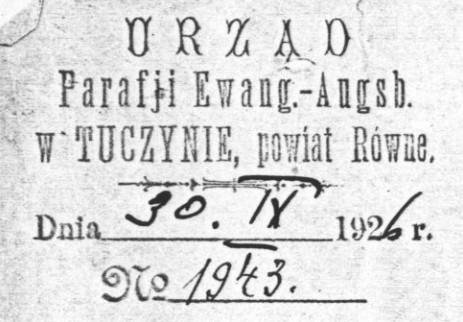 URZĄD
Parafji Ewang.-Augsb.
w TUCZYNIE, powiat Równe.
Dnia 30. IX 1926 r.
No 1943.